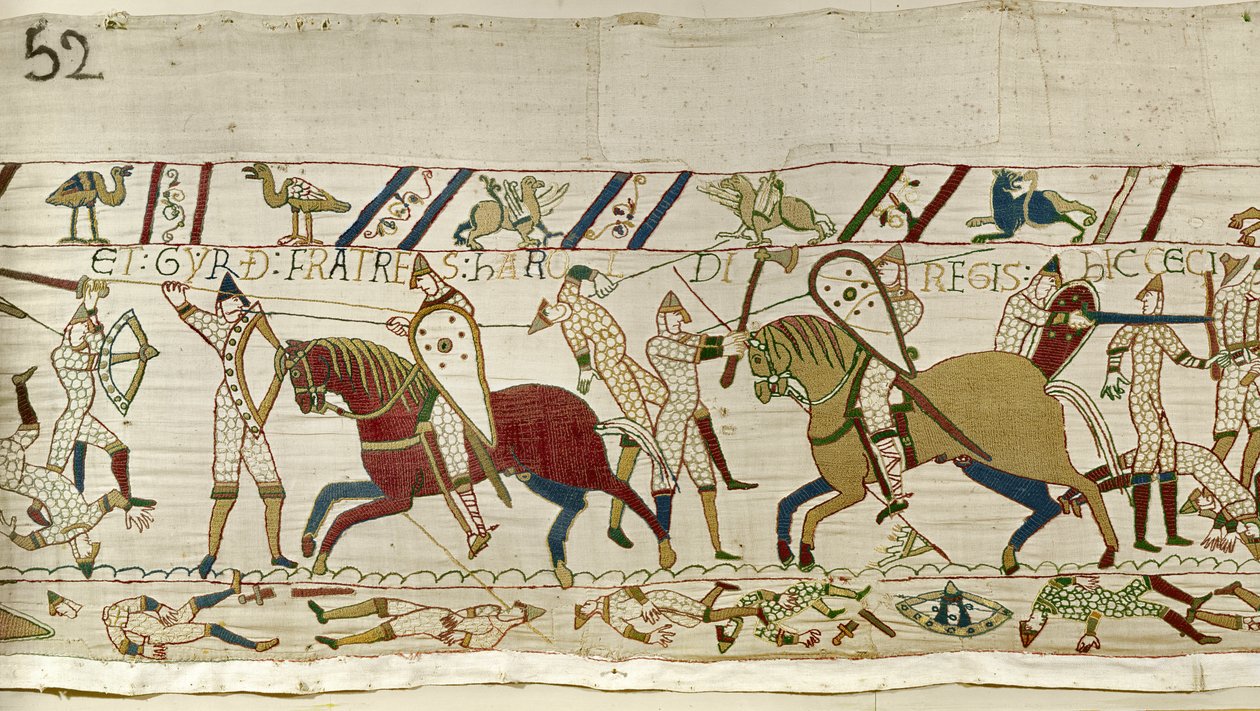 52
ET : GYRÐ : FRATRES : hAROLDI REGIS : hIC CECI